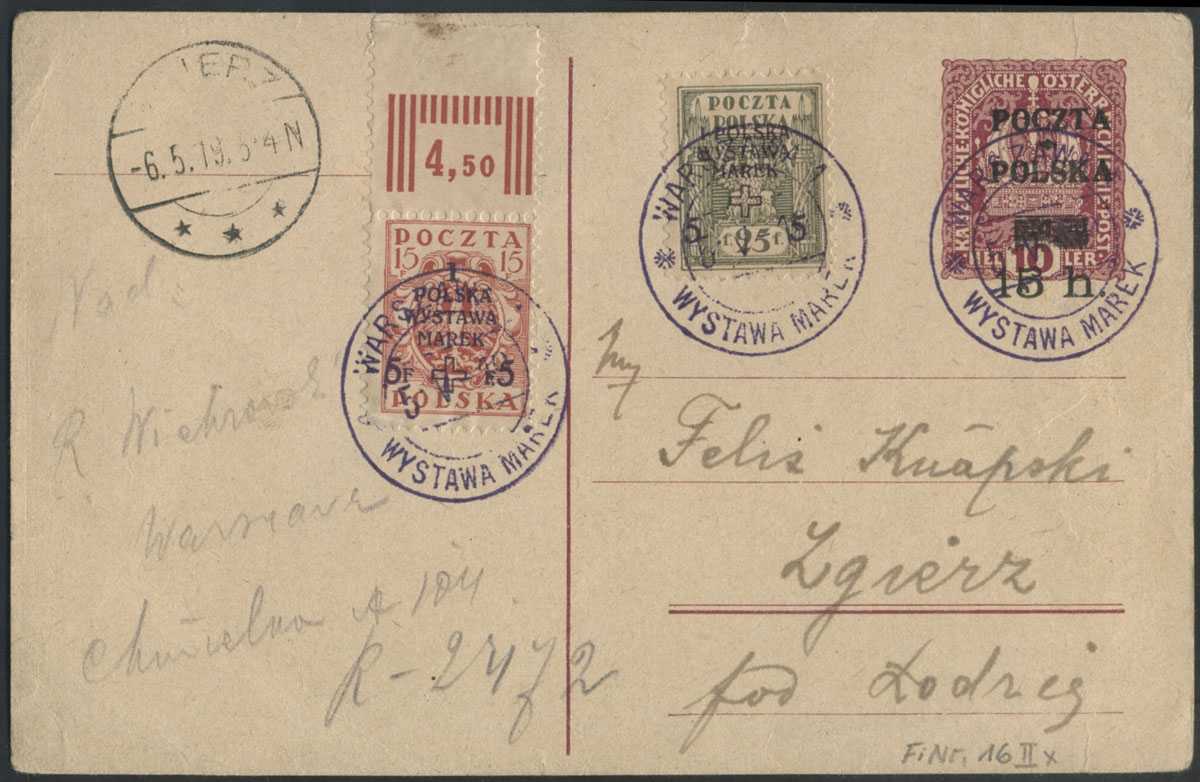 -6.5.19.3-4N
4,50
POCZTA
15 15
F
I
POLSKA
WYSTAWA
MAREK
5F F5
POLSKA
WARS
WYSTAWA MAREK
POCZTA
POLSKA
I POLSKA
WYSTAWA
MAREK
5 5
f. 25 f.
WARS
WYSTAWA MAREK
KAISERLICHEKÖNIGLICHE ÖSTERR
POST
POCZTA
POLSKA
HEL 10 LER
15 h.
WYSTAWA MAREK
Nad.
R Wichrowsk
Warszawa
Chmielna № 104
R-2472
Feliś Knapski
Zgierz
pod Łodzią
FiNr. 16 II x